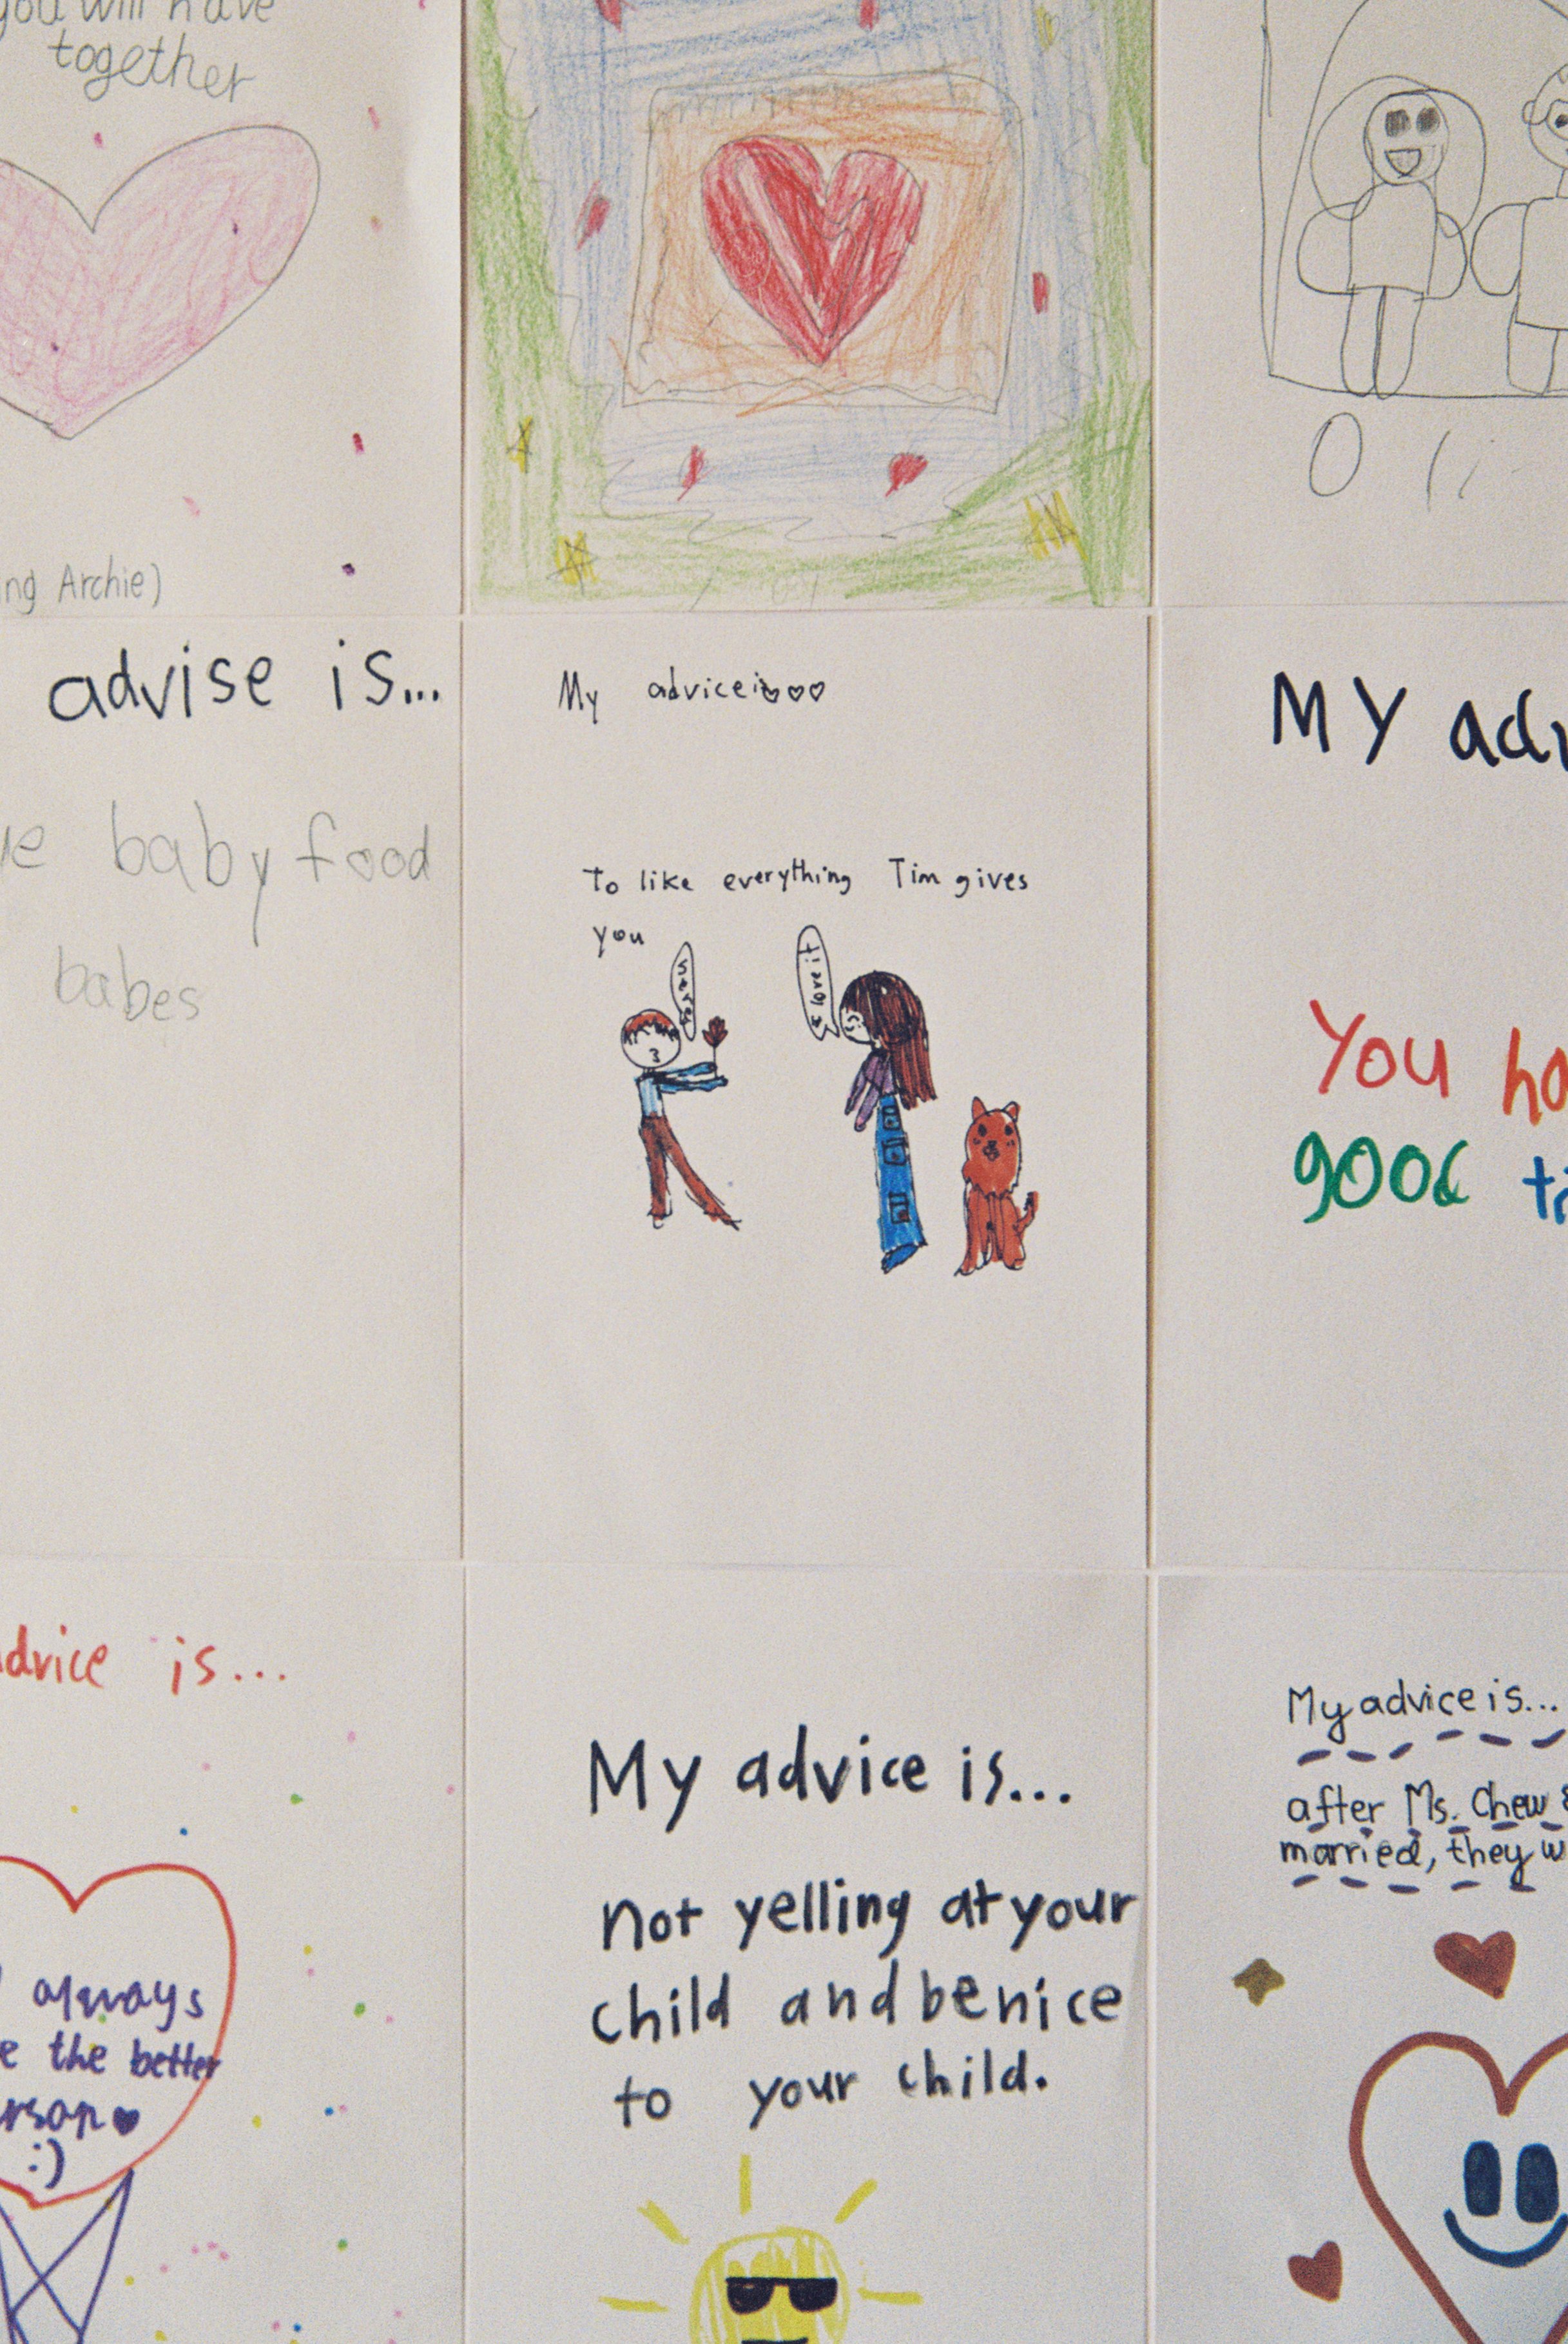 you will have
together
ng Archie)
O li
advise is...
baby food
babes
My advice is
To like everything Tim gives
you
I love it
MY
You
good
advice is...
always
the better
:)
My advice is...
not yelling at your
child and be nice
to your child.
My advice is...
after Ms. Chew
married, they